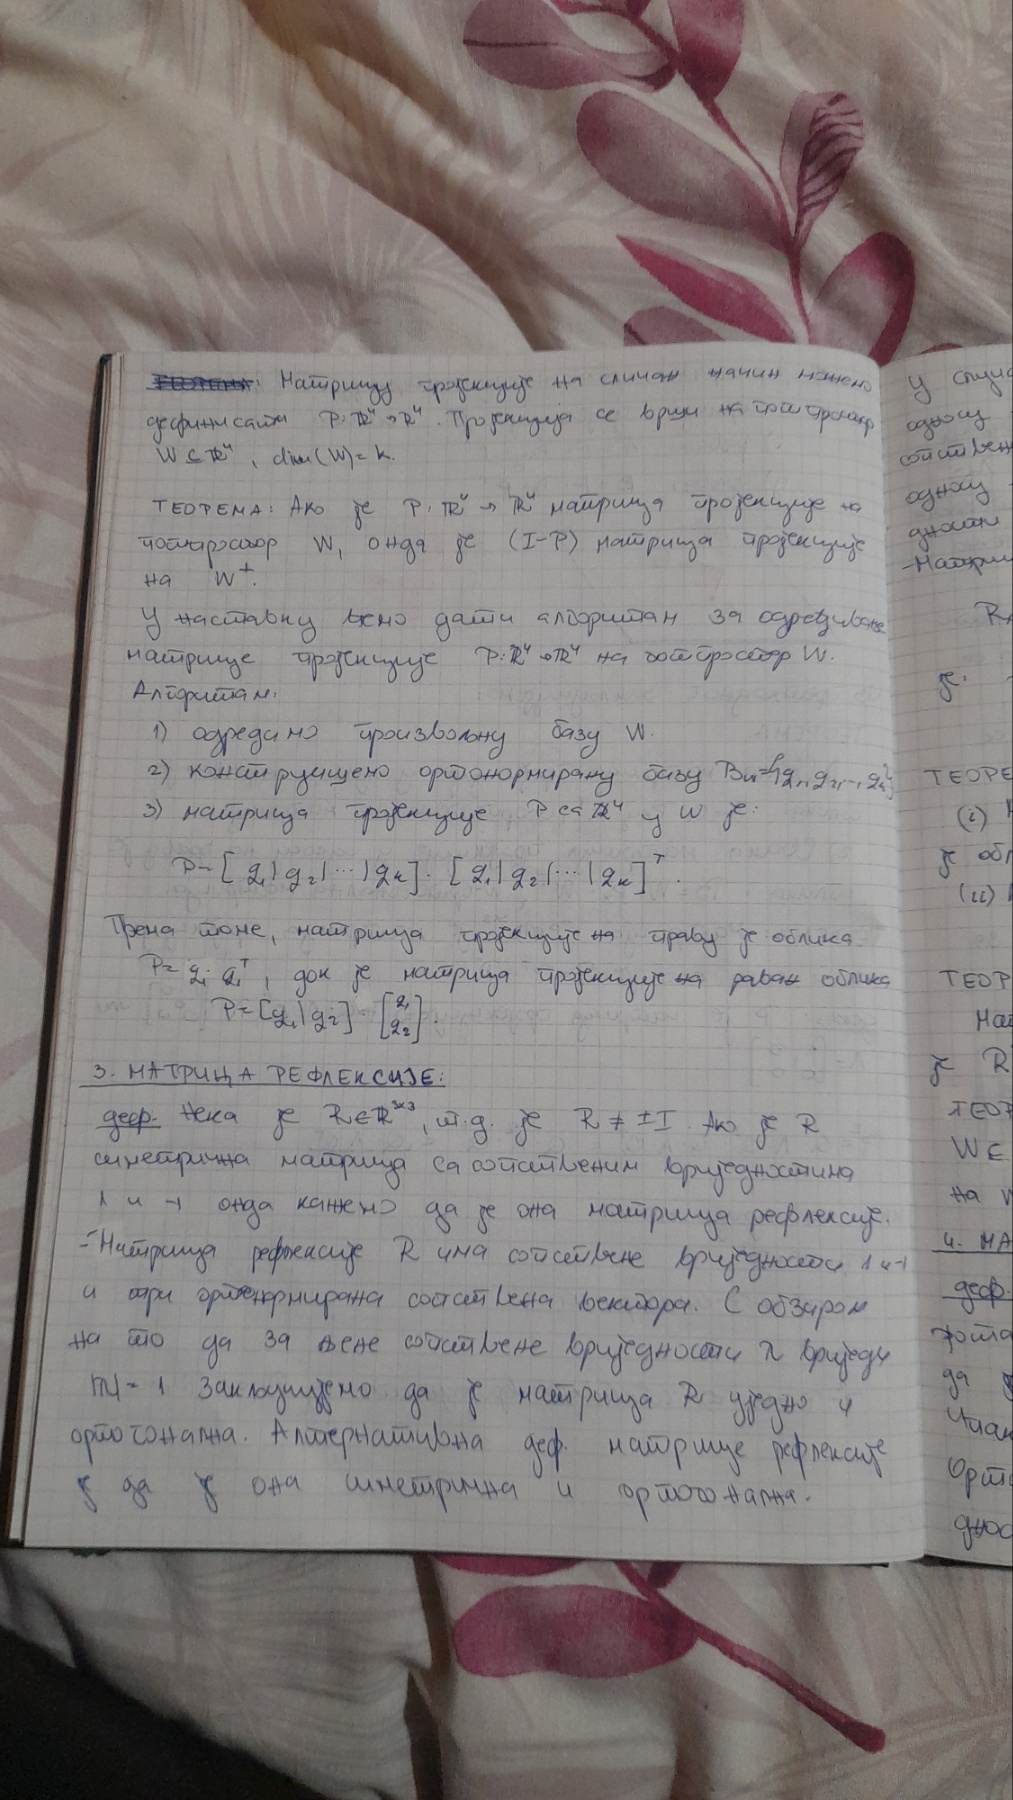 ТЕОРЕМА: Матрицу пројекције на сличан начин можемо
дефинисати P:ℝⁿ→ℝⁿ. Пројекција се врши на потпростор
W⊆ℝⁿ, dim(W)=k.
ТЕОРЕМА: Ако је P:ℝⁿ→ℝⁿ матрица пројекције на
потпростор W, онда је (I-P) матрица пројекције
на W⊥.
У наставку ћемо дати алгоритам за одређивање
матрице пројекције P:ℝⁿ→ℝⁿ на потпростор W.
Алгоритам:
1) одредимо произвољну базу W.
2) конструишемо ортонормирану базу Bw={q₁,q₂,...,qₖ}
3) матрица пројекције P са ℝⁿ у W је:
P=[q₁|q₂|...|qₖ]·[q₁|q₂|...|qₖ]ᵀ.
Према томе, матрица пројекције на праву је облика
P=q₁·q₁ᵀ, док је матрица пројекције на раван облика
P=[q₁|q₂]·[q₁ q₂].
3. МАТРИЦА РЕФЛЕКСИЈЕ:
деф. Нека је R∈ℝ³ˣ³, т.д. је R≠±I. Ако је R
симетрична матрица са сопственим вриједностима
1 и -1 онда кажемо да је она матрица рефлексије.
-Матрица рефлексије R има сопствене вриједности 1 и -1
и три ортонормирана сопствена вектора. С обзиром
на то да за њене сопствене вриједности λ вриједи
|λ|=1 закључујемо да је матрица R уједно и
ортогонална. Алтернативна деф. матрице рефлексије
је да је она симетрична и ортогонална.
У
одности
ТЕОРЕ
(i)
је обл
(ii)
ТЕОР
је R
ТЕОР
W∈
на
4. МА
деф.
да
Орто